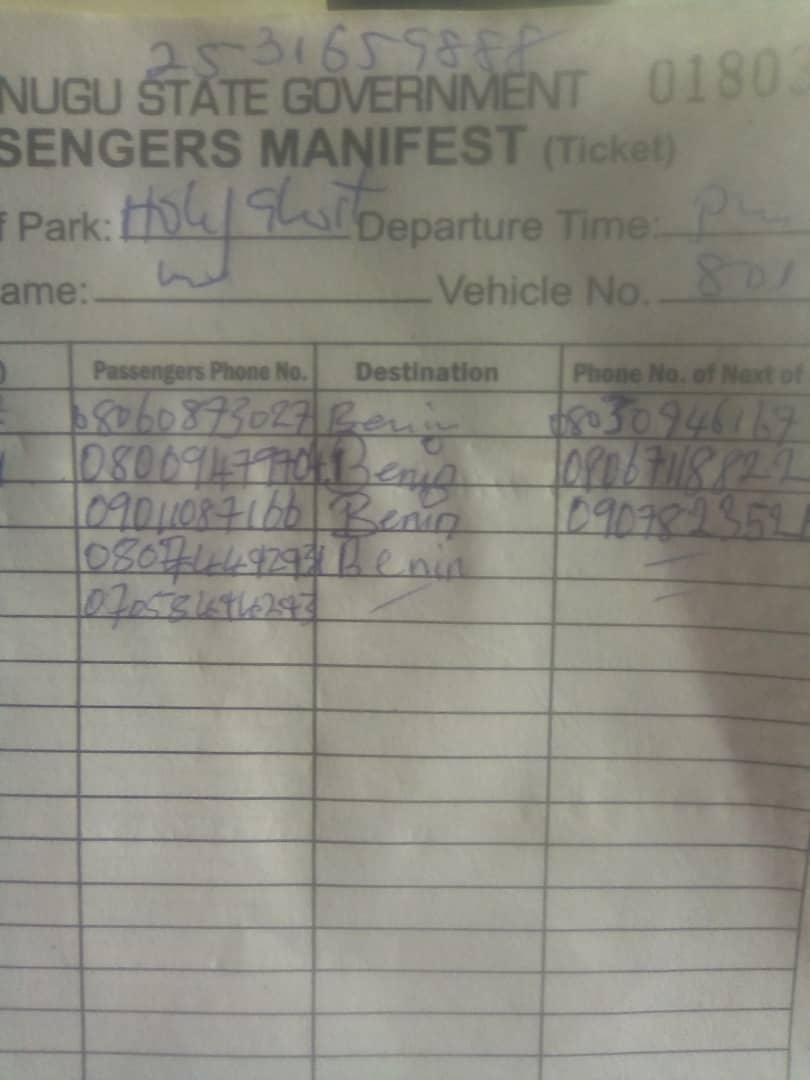 2531659888
NUGU STATE GOVERNMENT 01803
SENGERS MANIFEST (Ticket)
f Park: Holy Ghost Departure Time: pm
ame: Vehicle No. 801
Passengers Phone No. Destination Phone No. of Next of
08060873027 Benin 08030946167
Benin 08067118822
09011087166 Benin 0907823521
Benin